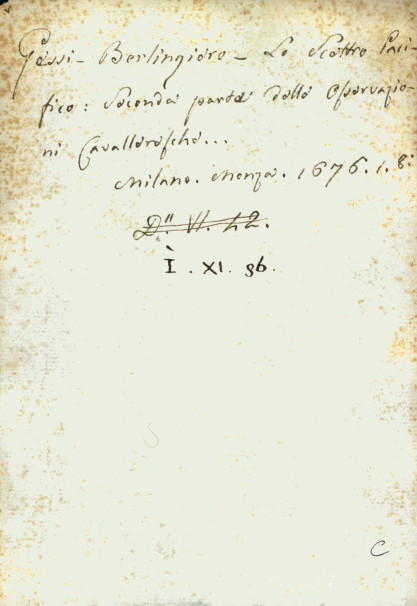 Gessi - Berlingiero - Lo Scettro Paci-
fico: Seconda parte delle Osservazio-
ni Cavalleresche...
Milano. Monza. 1676. 1. 8:
D". VI. 42.
I. XI. 96.
C